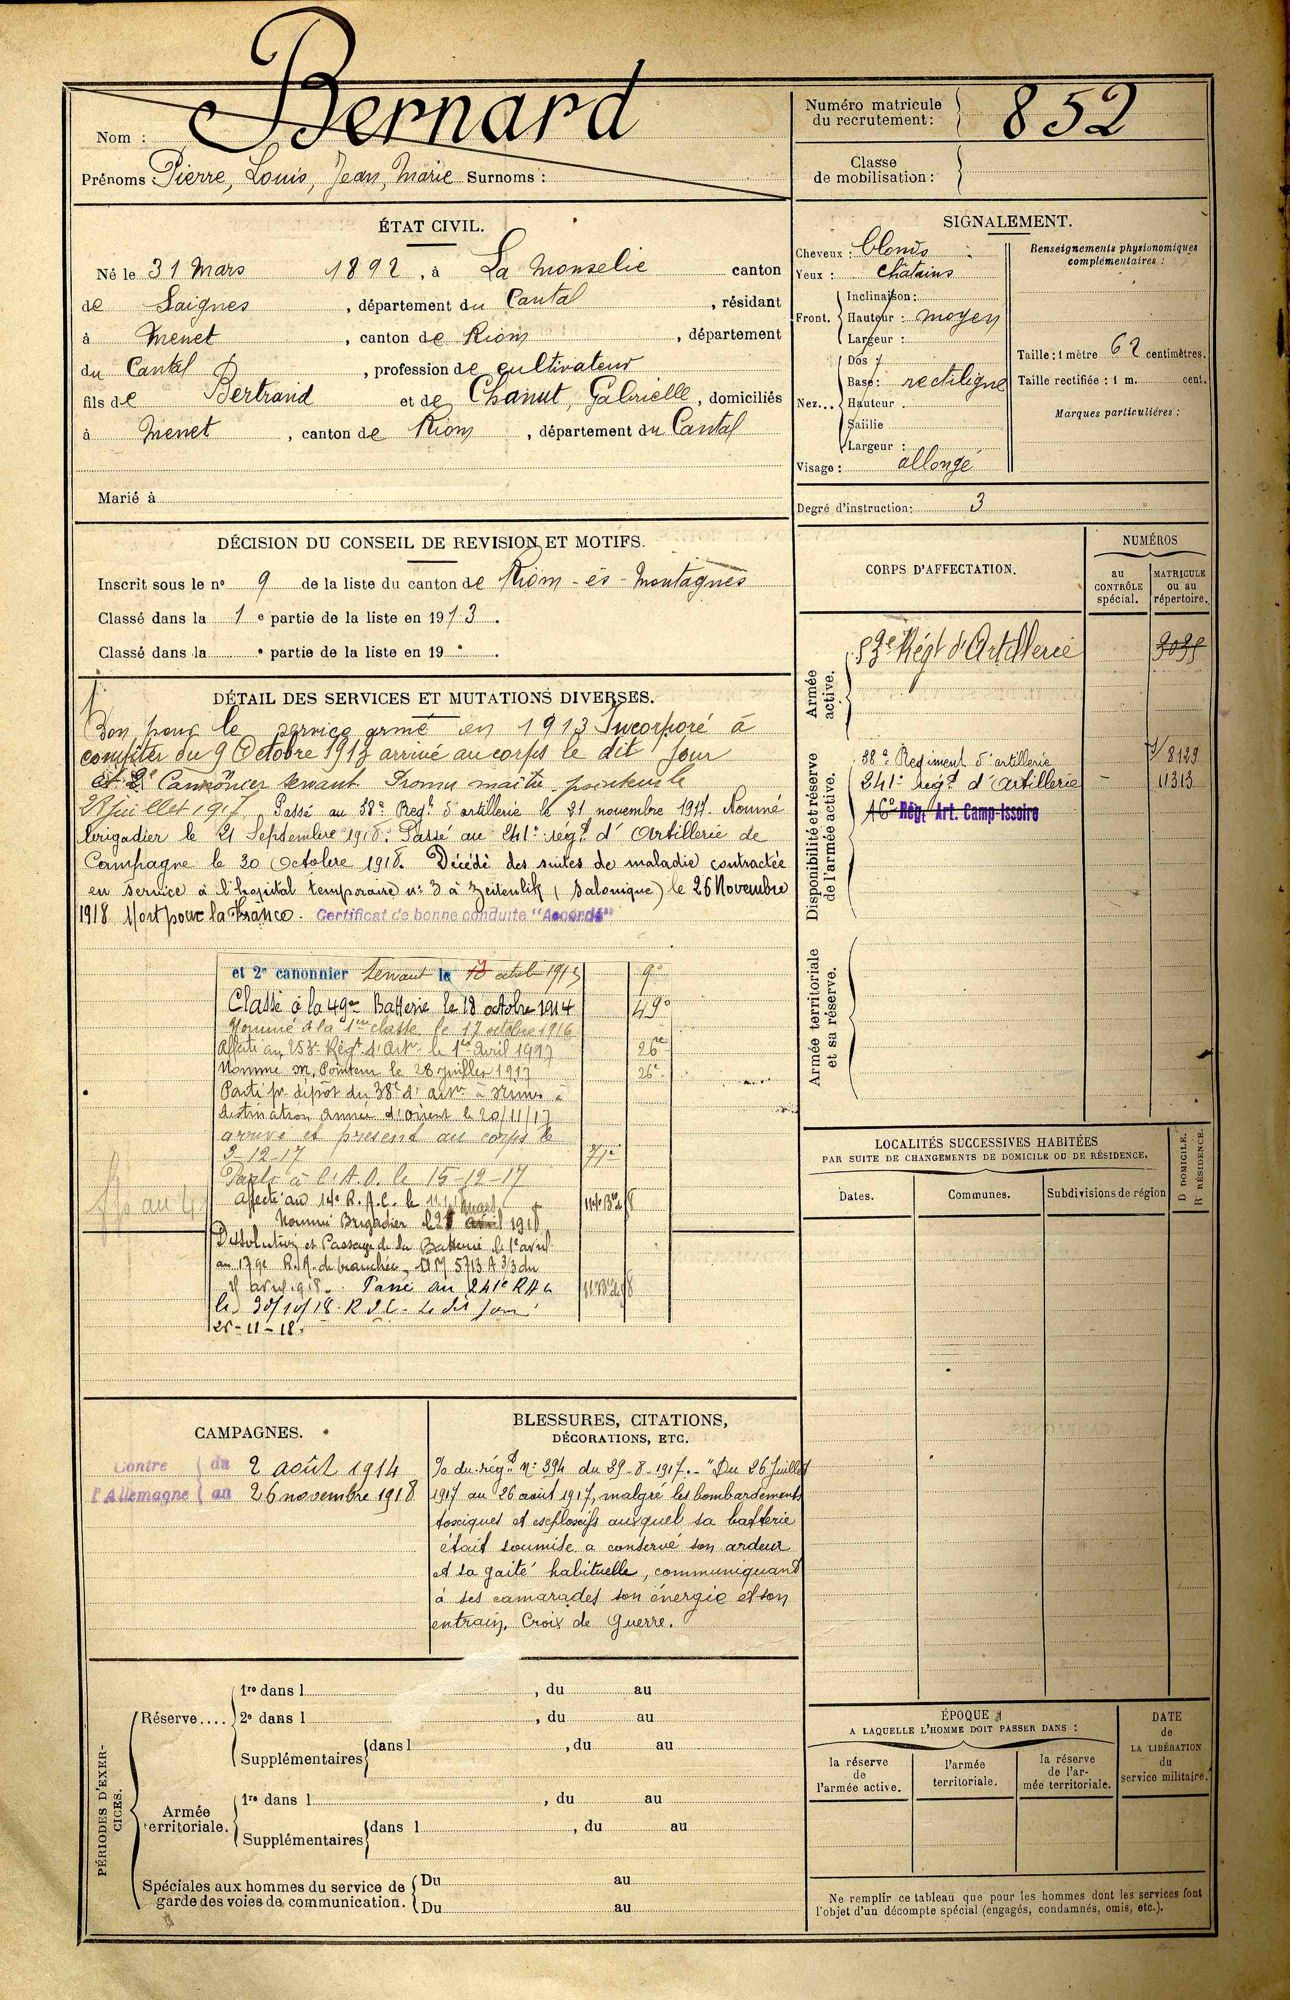 Nom : Bernard
Prénoms : Pierre, Louis, Jean, Marie Surnoms :
Numéro matricule du recrutement : 852
Classe de mobilisation :
ÉTAT CIVIL.
Né le 31 Mars 1892, à La Monselie canton
de Saignes, département du Cantal, résidant
à Menet, canton de Riom, département
du Cantal, profession de cultivateur
fils de Bertrand et de Chanut, Gabrielle, domiciliés
à Menet, canton de Riom, département du Cantal
Marié à
SIGNALEMENT.
Cheveux : blonds
Yeux : châtains
Front. Inclinaison :
Hauteur : moyen
Largeur :
Nez... Dos :
Base : rectiligne
Hauteur
Saillie
Largeur :
Visage : allongé
Renseignements physionomiques complémentaires :
Taille : 1 mètre 62 centimètres.
Taille rectifiée : 1 m. cent.
Marques particulières :
Degré d'instruction : 3
DÉCISION DU CONSEIL DE REVISION ET MOTIFS.
Inscrit sous le n° 9 de la liste du canton de Riom-ès-Montagnes
Classé dans la 1e partie de la liste en 1913.
Classé dans la e partie de la liste en 19 .
DÉTAIL DES SERVICES ET MUTATIONS DIVERSES.
Bon pour le service armé en 1913 Incorporé à
compter du 9 Octobre 1913 arrivé au corps le dit jour
et 2e Canonnier servant. Promu maître pointeur le
28 juillet 1917 Passé au 38e Régt d'artillerie le 21 novembre 1917. Nommé
brigadier le 21 Septembre 1918. Passé au 241e régt d'Artillerie de
Campagne le 30 Octobre 1918. Décédé des suites de maladie contractée
en service à l'hopital temporaire n° 3 à Zeitenlik (Salonique) le 26 Novembre
1918 Mort pour la France. Certificat de bonne conduite "Accordé"
et 2e canonnier servant le octobre 1913 9e
Classé à la 49e Batterie le 18 octobre 1914 49e
Nommé à la 1re classe le 17 octobre 1916
Affecté au 253e Régt d'Artie le 1er avril 1917 26e
Nommé M. Pointeur le 28 juillet 1917 26e
Parti pr dépôt du 38e d'artie à Nimes à
destination armée d'Orient le 20/11/17
arrivé et présent au corps le
3-12-17 71e
Parti à l'A.O. le 15-12-17
affecté au 14e R.A.C. le
Nommé Brigadier le 21 1918
Dissolution et Passage de la Batterie le 1er avril
au 179e R.A. de tranchée, 5713 A 3/3 du
avril 918. Passé au 241e RAC
le 30/10/18. R.D.C. le dit jour
25-11-18.
CORPS D'AFFECTATION.
NUMÉROS
au CONTRÔLE spécial.
MATRICULE ou au répertoire.
Armée active.
53e Régt d'Artillerie
Disponibilité et réserve de l'armée active.
38e Régiment d'artillerie 8129
241e régt d'artillerie 11313
16e Rég. Art. Camp-Issoire
Armée territoriale et sa réserve.
LOCALITÉS SUCCESSIVES HABITÉES
PAR SUITE DE CHANGEMENTS DE DOMICILE OU DE RÉSIDENCE.
Dates. Communes. Subdivisions de région
D DOMICILE. R RÉSIDENCE.
CAMPAGNES.
Contre l'Allemagne
du 2 août 1914
au 26 novembre 1918
BLESSURES, CITATIONS,
DÉCORATIONS, ETC.
du régt n° 394 du 29-8-1917. - "Du 26 Juillet
1917 au 26 août 1917, malgré les bombardements
toxiques et explosifs auxquel sa batterie
était soumise a conservé son ardeur
et sa gaité habituelle, communiquant
à ses camarades son énergie et son
entrain. Croix de Guerre.
PÉRIODES D'EXERCICES.
Réserve....
1re dans l , du au
2e dans l , du au
Supplémentaires dans l , du au
Armée territoriale.
1re dans l , du au
Supplémentaires dans l , du au
Spéciales aux hommes du service de garde des voies de communication.
Du au
Du au
ÉPOQUE
A LAQUELLE L'HOMME DOIT PASSER DANS :
la réserve de l'armée active.
l'armée territoriale.
la réserve de l'armée territoriale.
DATE de LA LIBÉRATION du service militaire.
Ne remplir ce tableau que pour les hommes dont les services font
l'objet d'un décompte spécial (engagés, condamnés, omis, etc.).